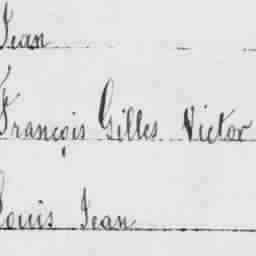 Jean
François Gilles Victor
Louis Jean